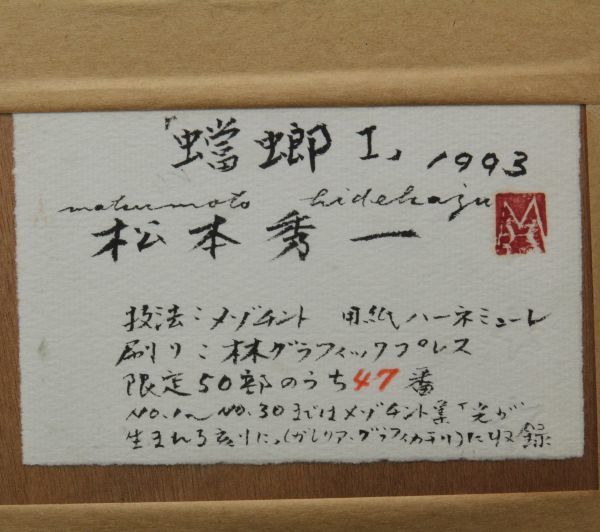 「蟷螂I」 1993
matsumoto hidekazu
松本秀一
技法:メゾチント 用紙ハーネミューレ
刷り:林グラフィックプレス
限定50部のうち47番
NO.1〜NO.30まではメゾチント集「光が
生まれる刻に」(ガレリア・グラフィカ刊)に収録